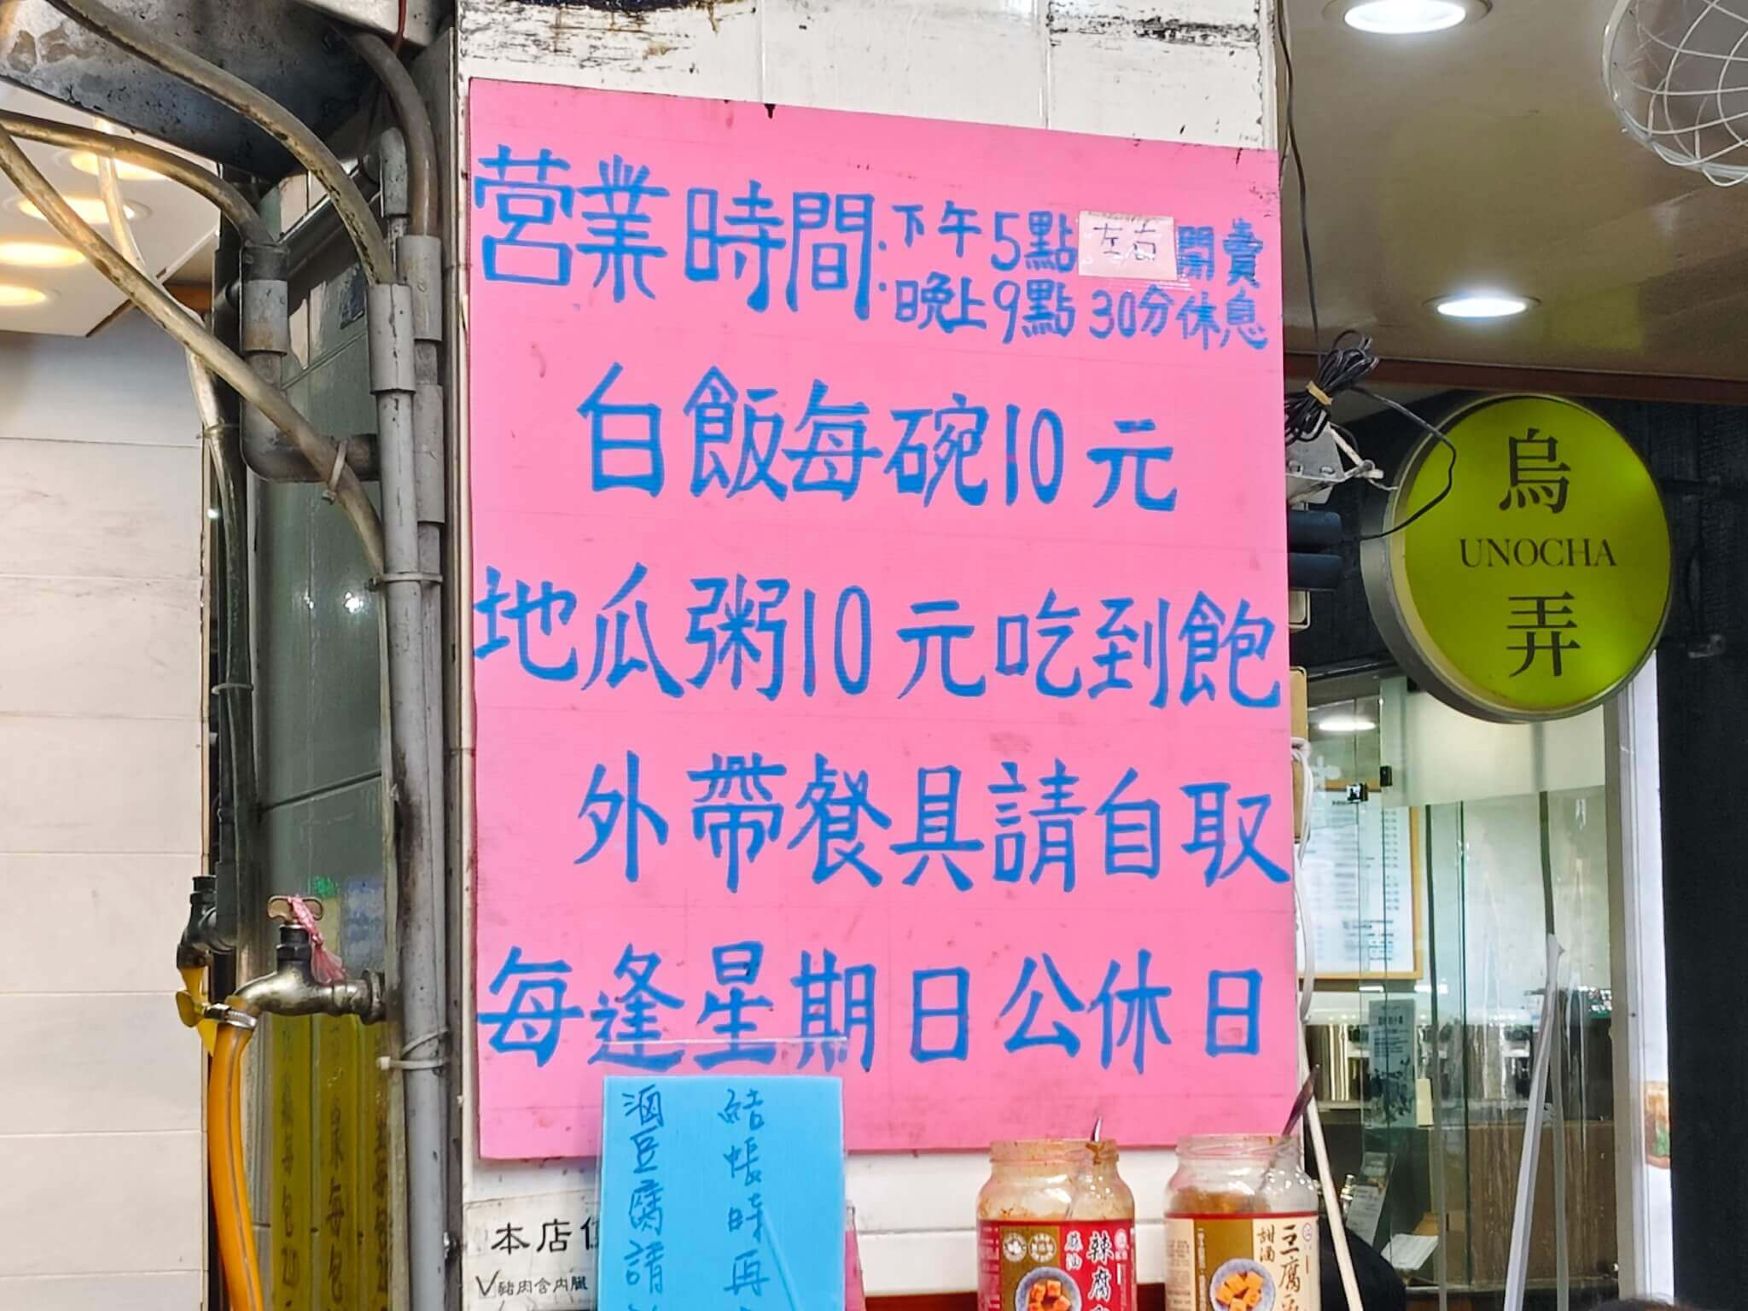 営業時間:下午5點左右開賣
晚上9點30分休息
白飯每碗10元
地瓜粥10元吃到飽
外帶餐具請自取
每逢星期日公休日
結帳時再
滷豆腐請
本店
V豬肉含內臟
烏
UNOCHA
弄
麻油
辣腐
甜酒
豆腐乳